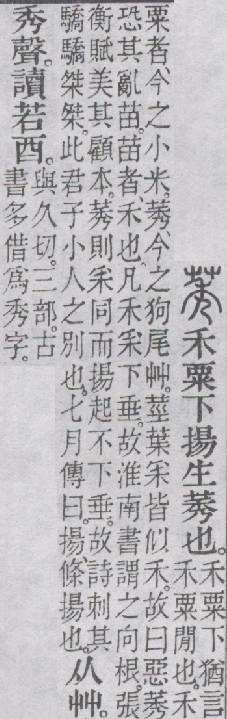 莠 禾粟下揚生莠也。
禾粟下猶言
禾粟閒也。禾
粟者、今之小米。莠、今之狗尾艸。莖葉采皆似禾。故曰惡莠
恐其亂苗。苗者禾也。凡禾采下垂。故淮南書謂之向根。張
衡賦美其顧本。莠則采同而揚起不下垂。故詩刺其
驕驕桀桀。此君子小人之別也。七月傳曰。揚、條揚也。
从艸。
秀聲。讀若酉。
與久切。三部。古
書多借爲秀字。